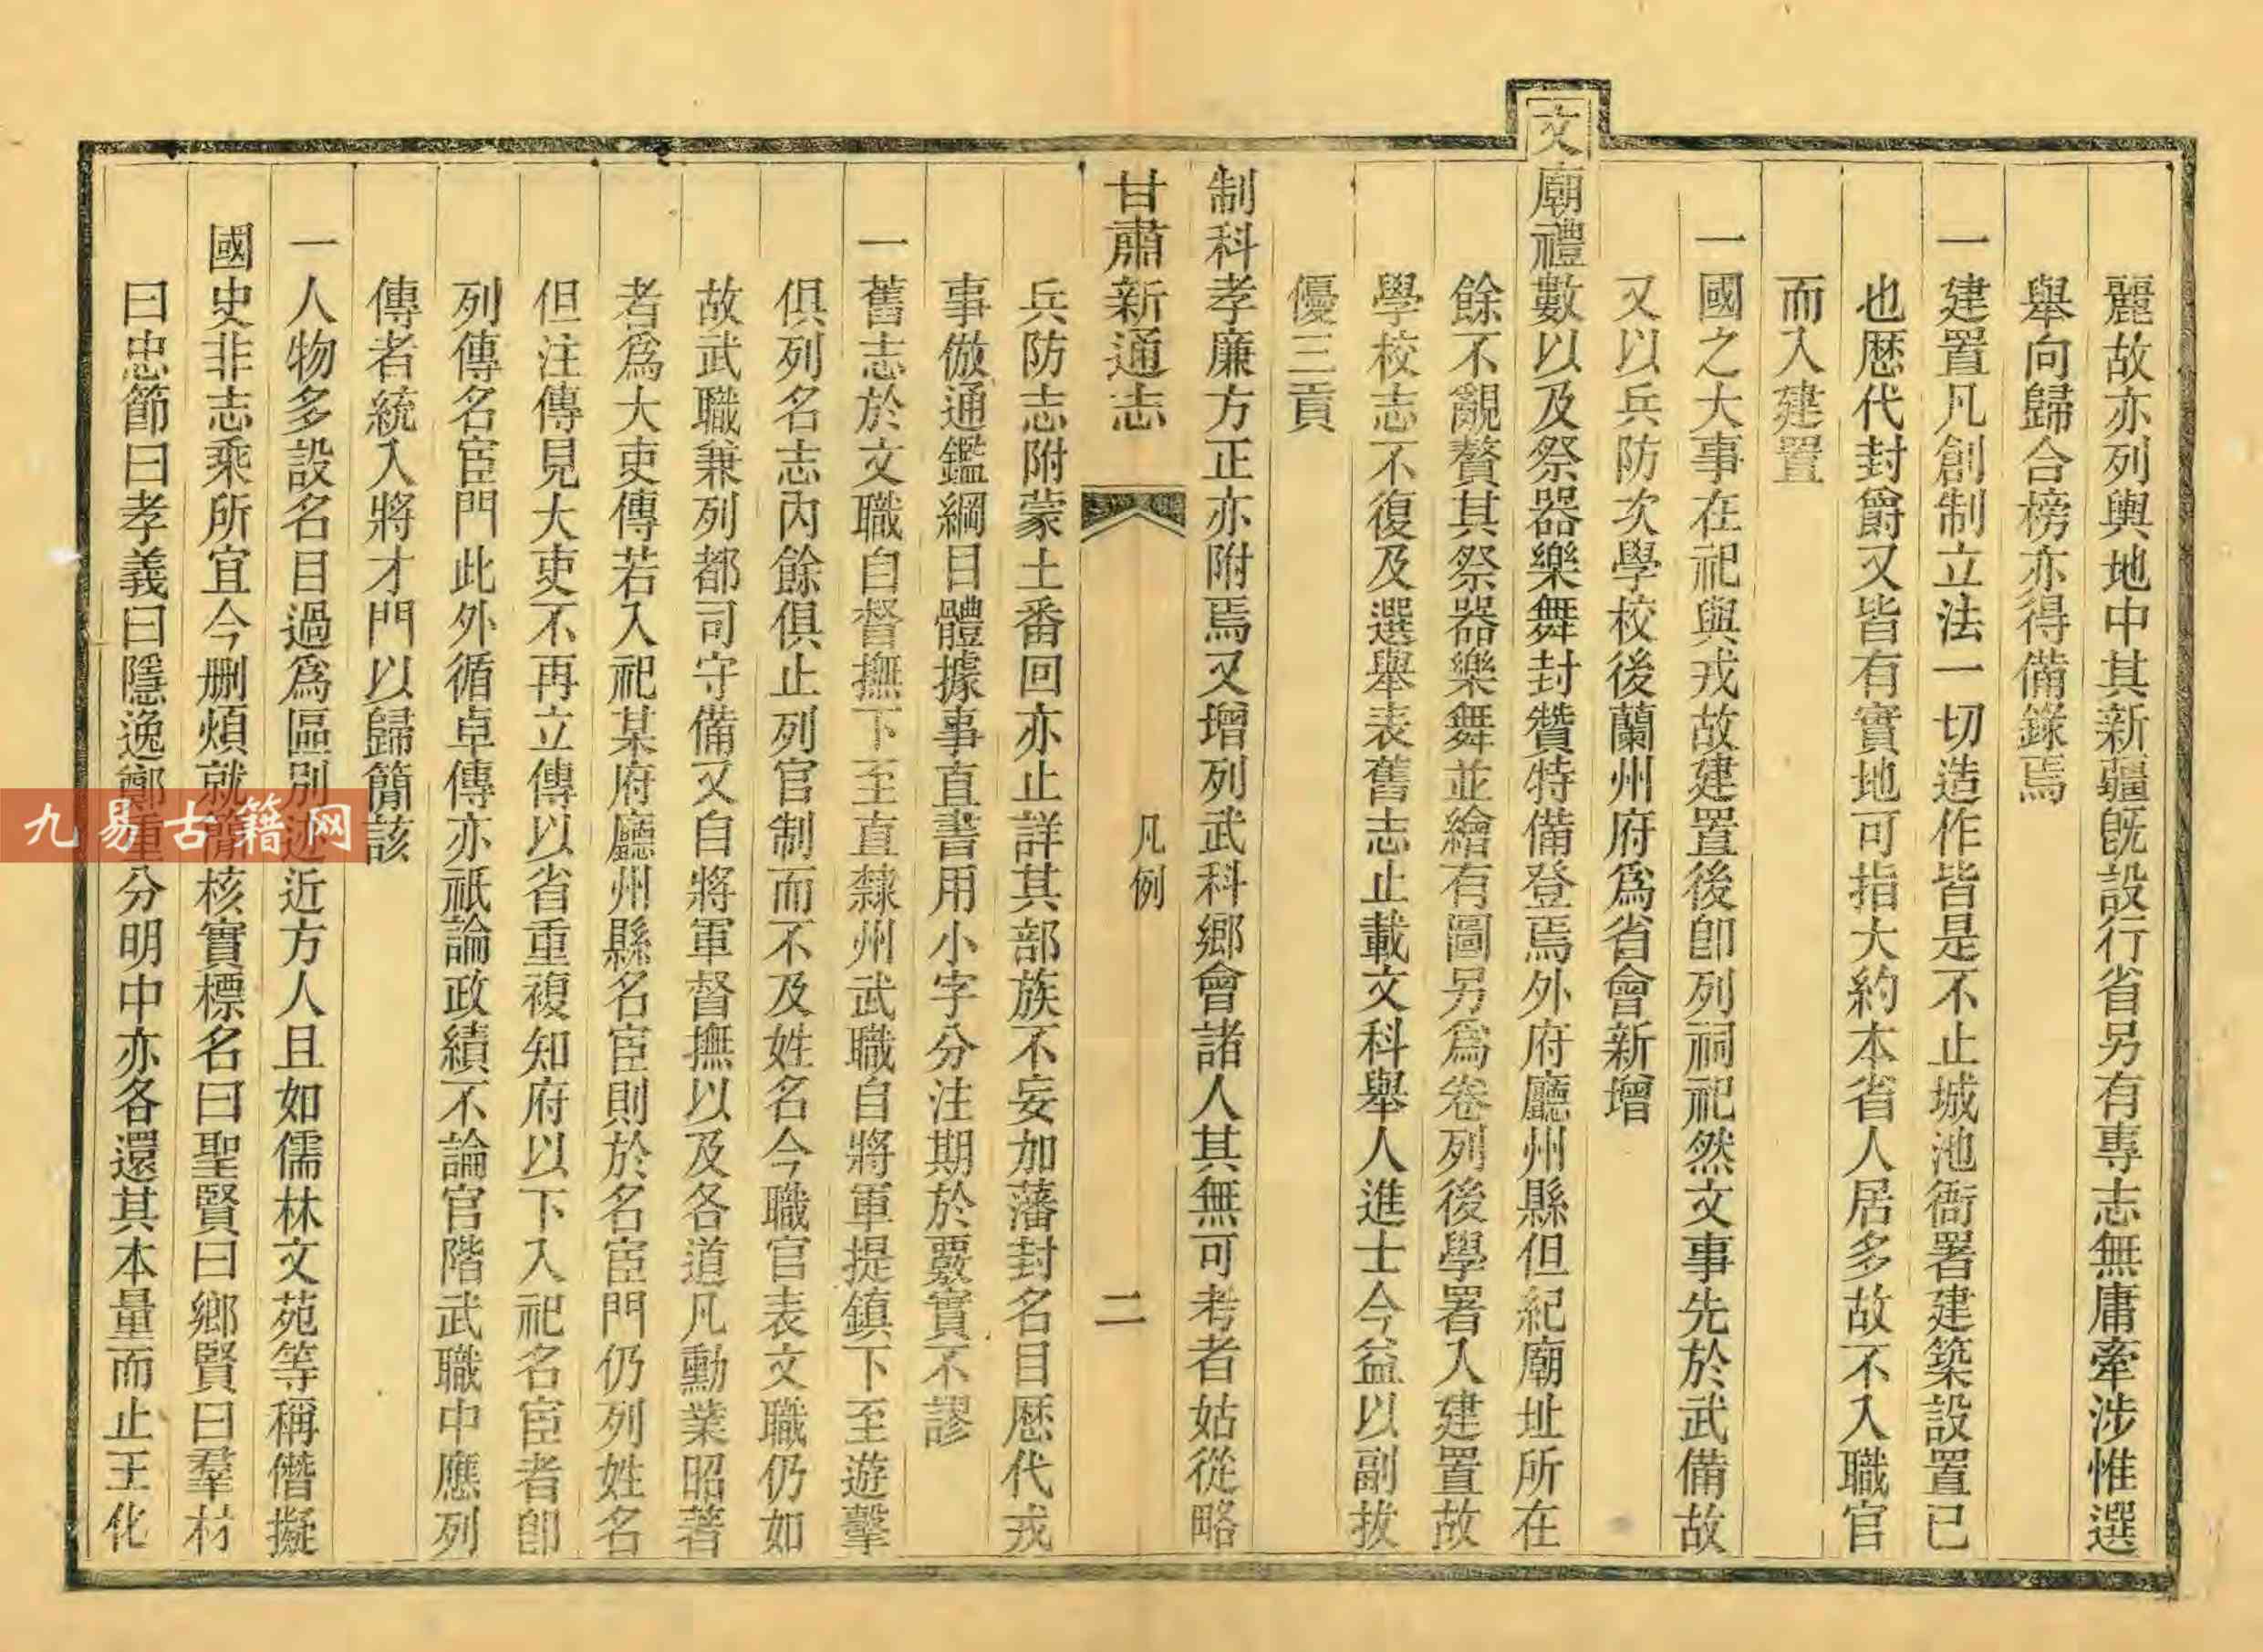 麗故亦列輿地中其新疆旣設行省另有專志無庸牽涉惟選
舉向歸合榜亦得備錄焉
一建置凡創制立法一切造作皆是不止城池衙署建築設置已
也歷代封爵又皆有實地可指大約本省人居多故不入職官
而入建置
一國之大事在祀與戎故建置後卽列祠祀然文事先於武備故
又以兵防次學校後蘭州府爲省會新增
文廟禮數以及祭器樂舞封贊特備登焉外府廳州縣但紀廟址所在
餘不覶贅其祭器樂舞並繪有圖另爲卷列後學署入建置故
學校志不復及選舉表舊志止載文科舉人進士今益以副拔
優三貢
制科孝廉方正亦附焉又增列武科鄉會諸人其無可考者姑從略
甘肅新通志
凡例
二
兵防志附蒙土番回亦止詳其部族不妄加藩封名目歷代戎
事倣通鑑綱目體據事直書用小字分注期於覈實不謬
一舊志於文職自督撫下至直隸州武職自將軍提鎮下至遊擊
俱列名志內餘俱止列官制而不及姓名今職官表文職仍如
故武職兼列都司守備又自將軍督撫以及各道凡勳業昭著
者爲大吏傳若入祀某府廳州縣名宦則於名宦門仍列姓名
但注傳見大吏不再立傳以省重複知府以下入祀名宦者卽
列傳名宦門此外循卓傳亦祇論政績不論官階武職中應列
傳者統入將才門以歸簡該
一人物多設名目過爲區別迹近方人且如儒林文苑等稱僭擬
國史非志乘所宜今刪煩就簡核實標名曰聖賢曰鄉賢曰羣材
曰忠節曰孝義曰隱逸鄭重分明中亦各還其本量而止王化
九易古籍网